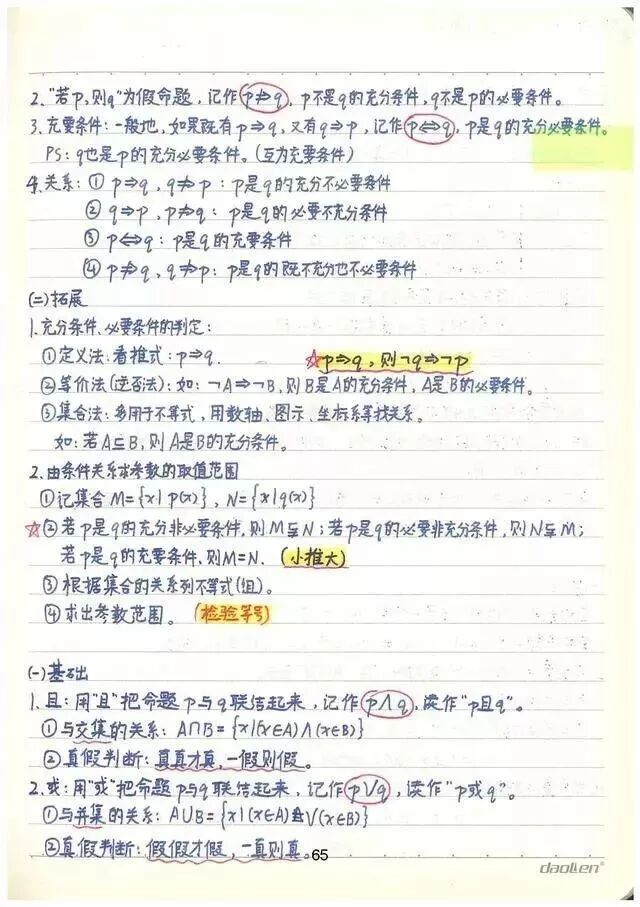 2. "若p,则q"为假命题,记作p⇏q,p不是q的充分条件,q不是p的必要条件。
3. 充要条件:一般地,如果既有p⇒q,又有q⇒p,记作p⇔q,p是q的充分必要条件。
PS: q也是p的充分必要条件。(互为充要条件)
4. 关系:① p⇒q, q⇏p: p是q的充分不必要条件
② q⇒p, p⇏q: p是q的必要不充分条件
③ p⇔q: p是q的充要条件
④ p⇏q, q⇏p: p是q的既不充分也不必要条件
(二)拓展
1. 充分条件、必要条件的判定:
①定义法:看推式:p⇒q. ☆p⇒q,则¬q⇒¬p
②等价法(逆否法):如:¬A⇒¬B,则B是A的充分条件,A是B的必要条件。
③集合法:多用于不等式,用数轴、图示、坐标系等找关系。
如:若A⊆B,则A是B的充分条件。
2. 由条件关系求参数的取值范围
①记集合M={x|p(x)}, N={x|q(x)}
☆②若p是q的充分非必要条件,则M⊊N;若p是q的必要非充分条件,则N⊊M;
若p是q的充要条件,则M=N. (小推大)
③根据集合的关系列不等式(组)。
④求出参数范围。 (检验等号)
(一)基础
1. 且:用"且"把命题p与q联结起来,记作p∧q,读作"p且q"。
①与交集的关系:A∩B={x|(x∈A)∧(x∈B)}
②真假判断:真真才真,一假则假。
2. 或:用"或"把命题p与q联结起来,记作p∨q,读作"p或q"。
①与并集的关系:A∪B={x|(x∈A)∨(x∈B)}
②真假判断:假假才假,一真则真。65
daolen®